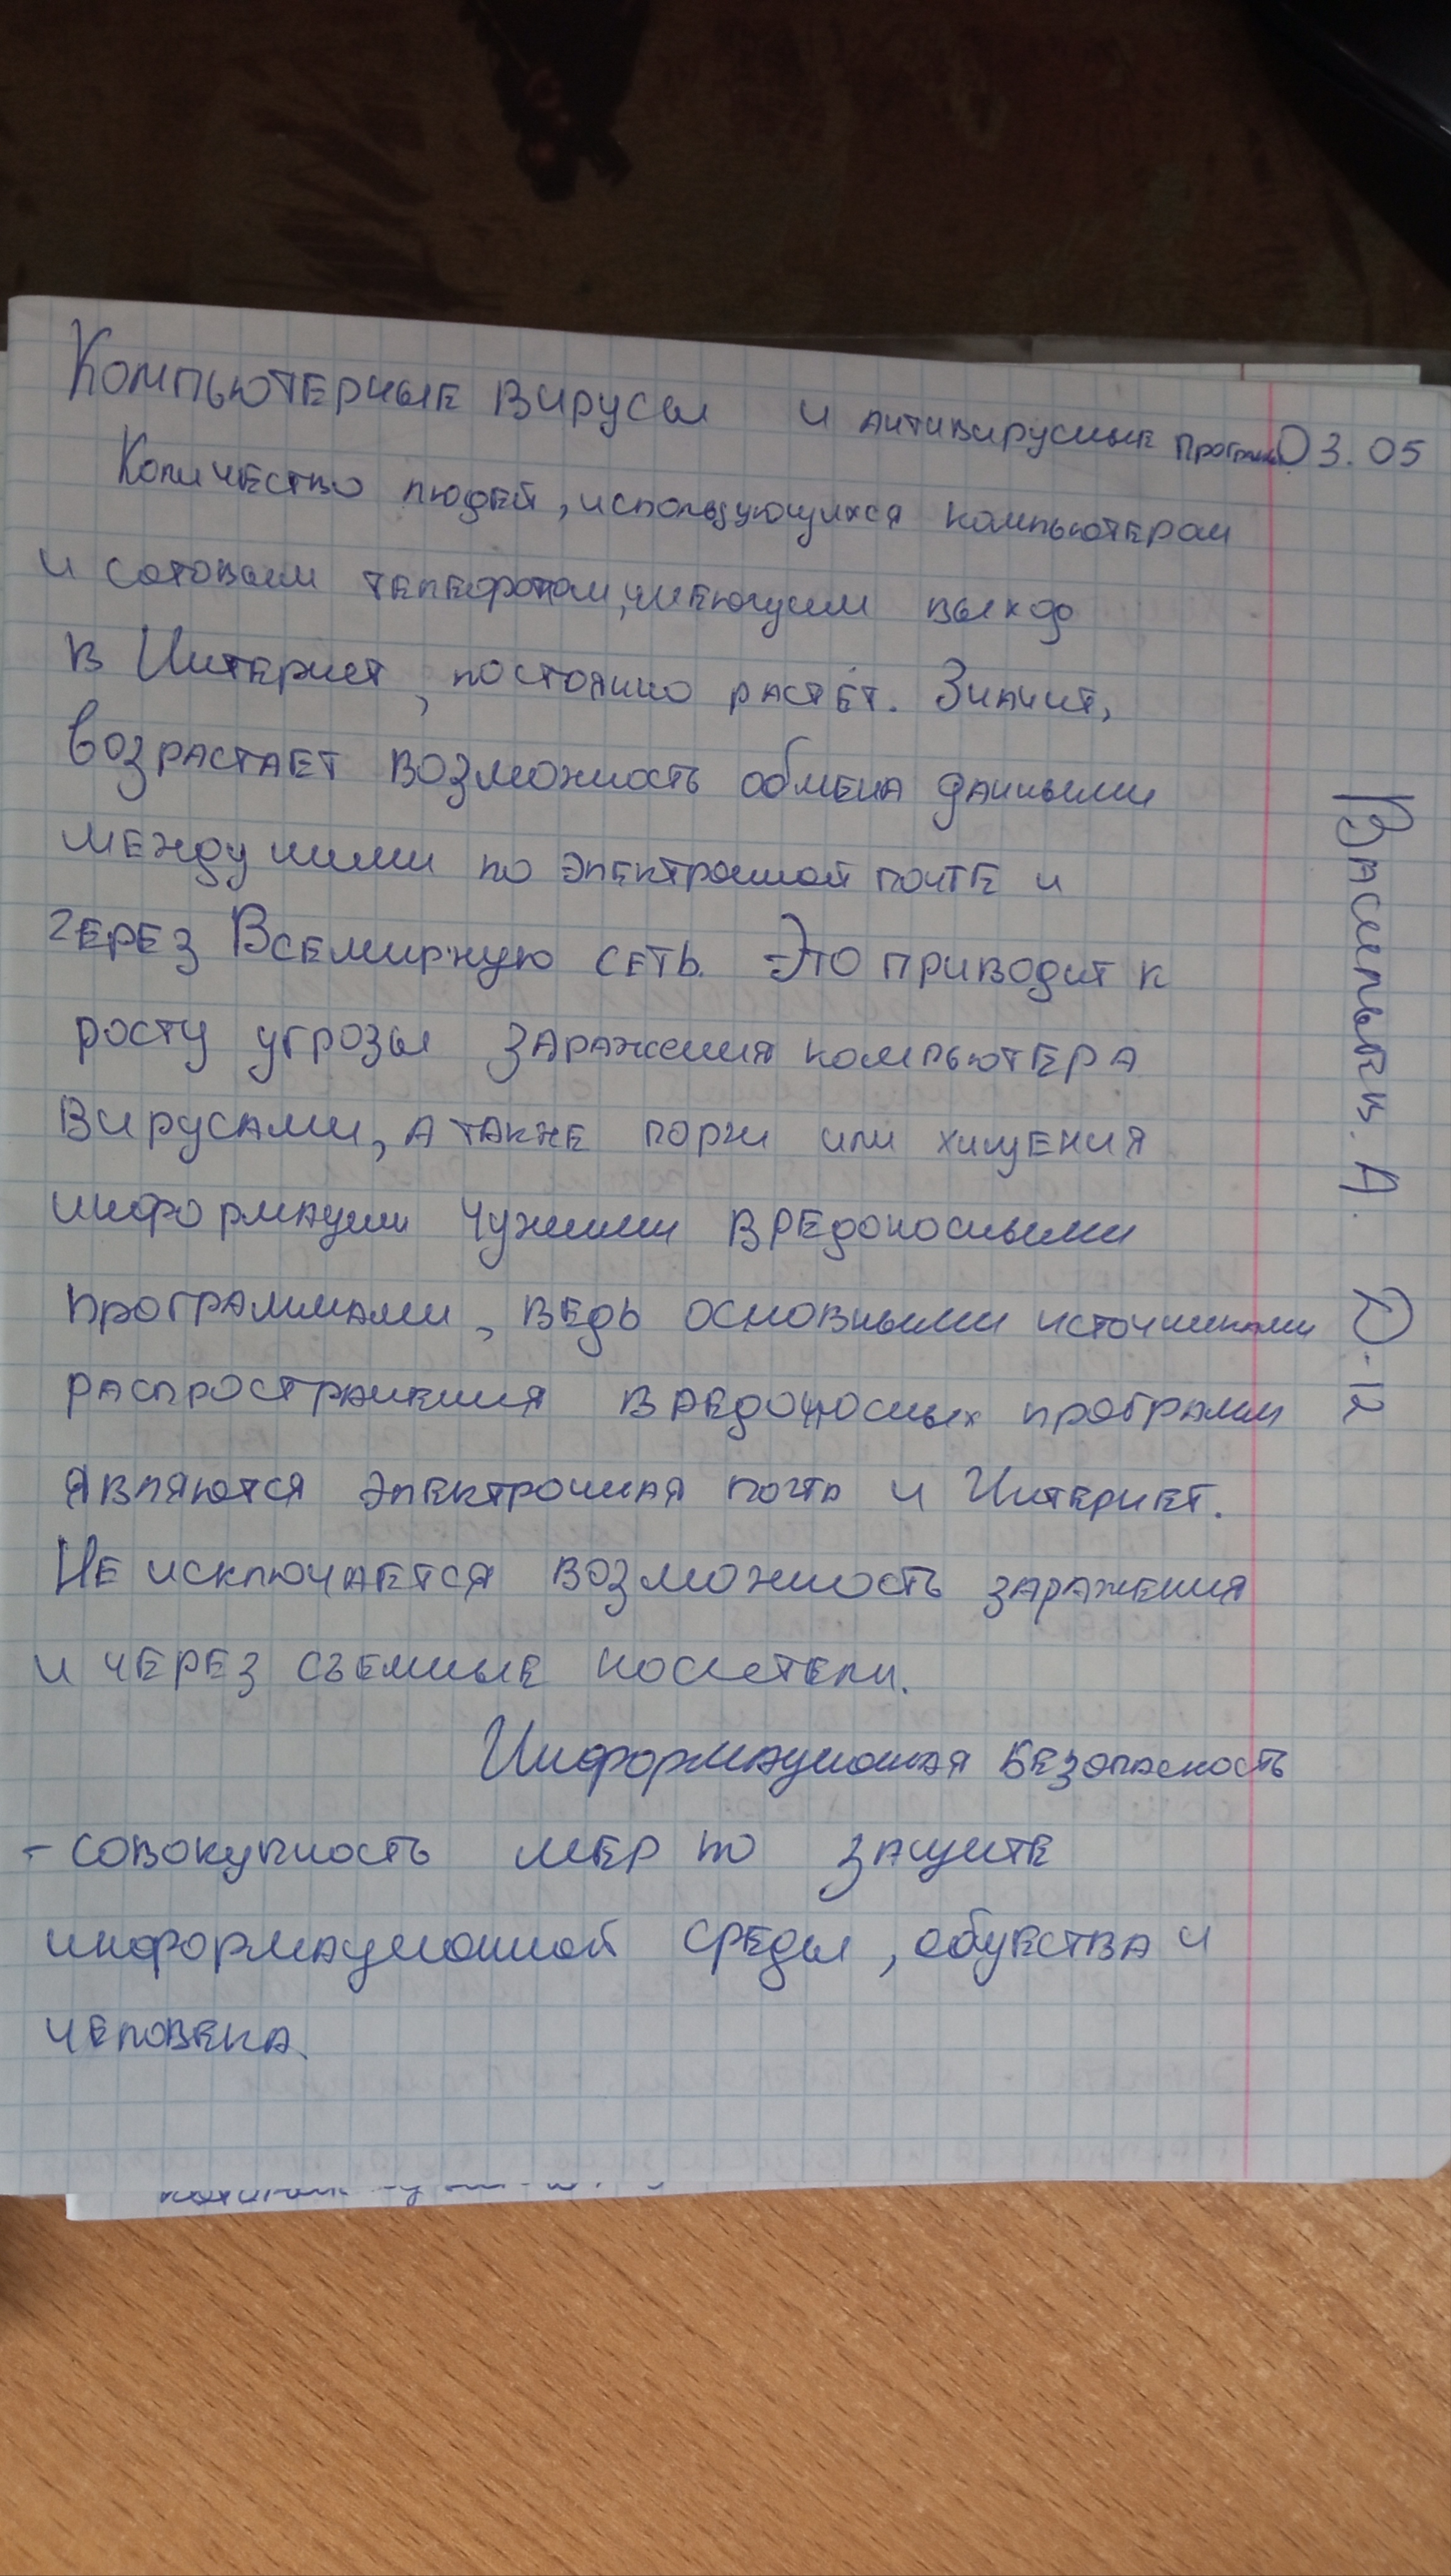 Компьютерные вирусы и антивирусные програмы 03.05
Количество людей, использующихся компьютером
и сотовым телефоном, имеющим выход
в Интернет, постоянно растёт. Значит,
возрастает возможность обмена данными
между ними по электронной почте и
через Всемирную сеть. Это приводит к
росту угрозы заражения компьютера
вирусами, а также порчи или хищения
информации чужими вредоносными
программами, ведь основными источниками
распространения вредоносных программ
являются электронная почта и Интернет.
Не исключается возможность заражения
и через съемные носители.
Информационная безопасность
- совокупность мер по защите
информационной среды, общества и
человека.
А. Д-12